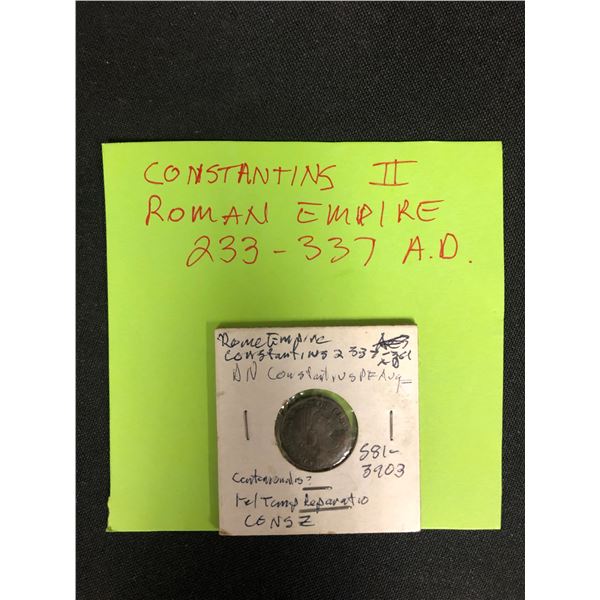 CONSTANTINS II
ROMAN EMPIRE
233-337 A.D.
Rome Empire
Constantins 2 337-361
DN Constantius PF Aug
S81-
3903
Fel Temp Reparatio
CONSZ